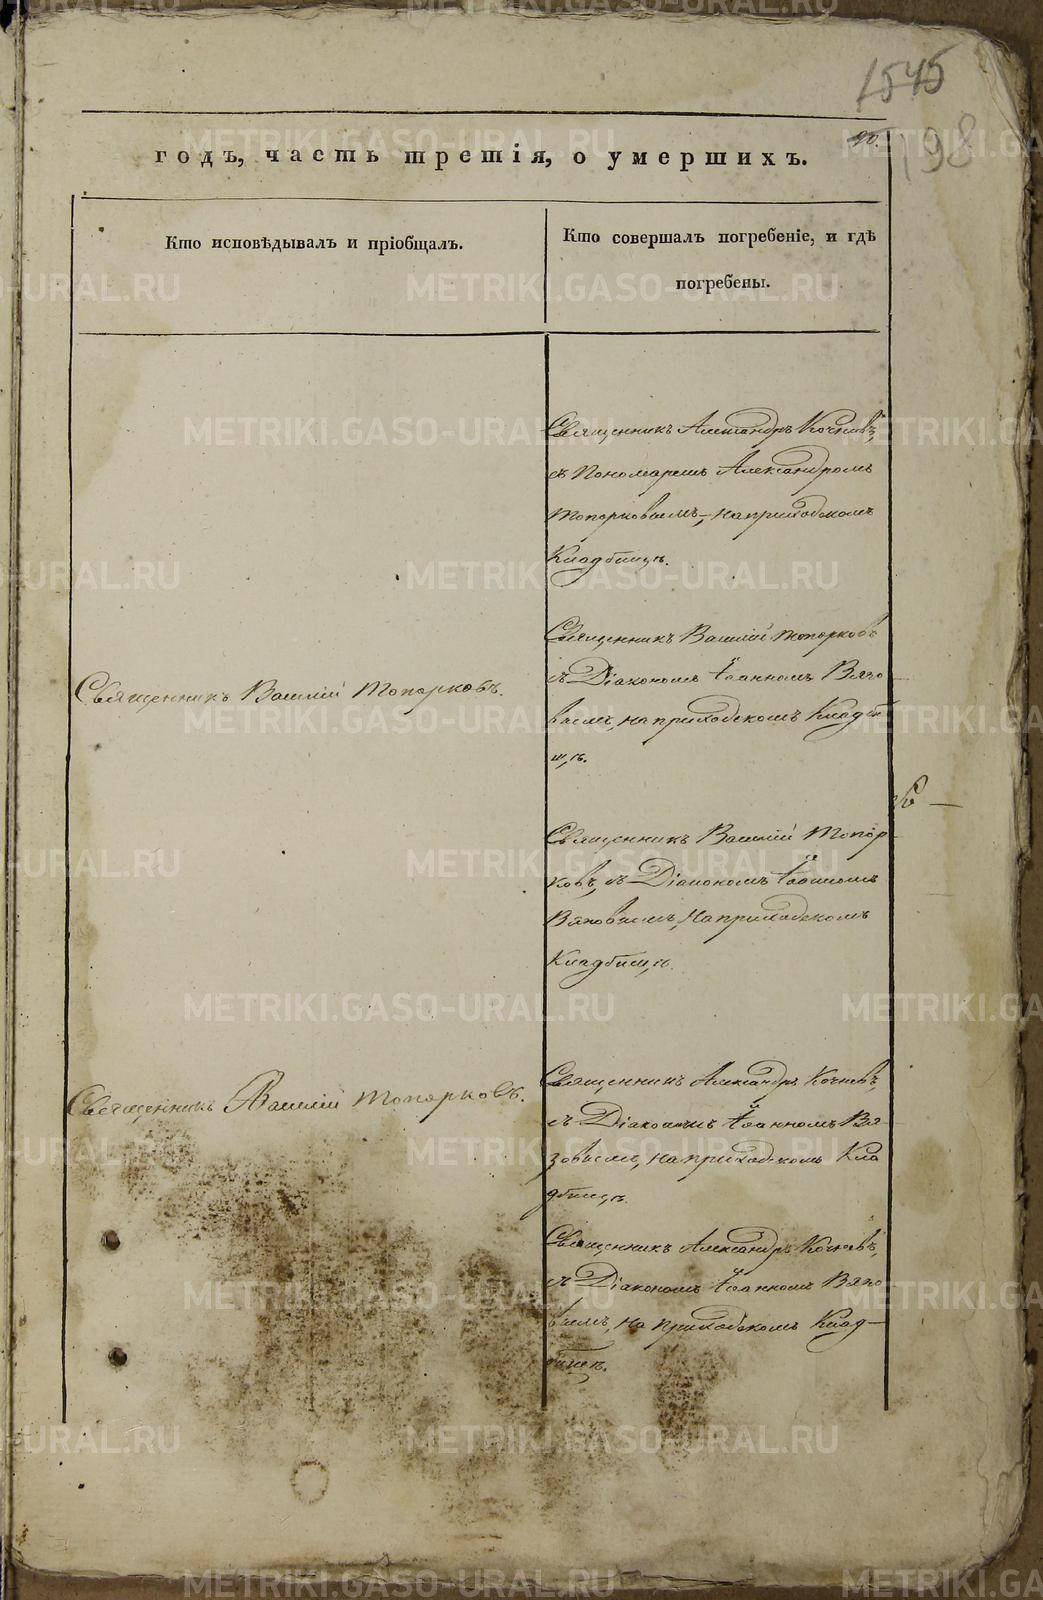 1545
90.
198
годъ, часть третія, о умершихъ.
Кто исповѣдывалъ и пріобщалъ.
Кто совершалъ погребеніе, и гдѣ
погребены.
Священникъ Александръ Кочневъ,
съ Пономаремъ Александромъ
Топорковымъ, на приходскомъ
Кладбищѣ.
Священникъ Василій Топорковъ.
Священникъ Василій Топорковъ
съ Діакономъ Іоанномъ Вязо
вымъ, на приходскомъ Кладби
щѣ.
Священникъ Василій Топор-
ковъ, съ Діакономъ Іоанномъ
Вязовымъ, на приходскомъ
Кладбищѣ.
Священникъ Василій Топорковъ.
Священникъ Александръ Кочневъ,
съ Діакономъ Іоанномъ Вя-
зовымъ, на приходскомъ Кла
дбищѣ.
Священникъ Александръ Кочневъ,
съ Діакономъ Іоанномъ Вязо
вымъ, на приходскомъ Клад-
бищѣ.
METRIKI.GASO-URAL.RU